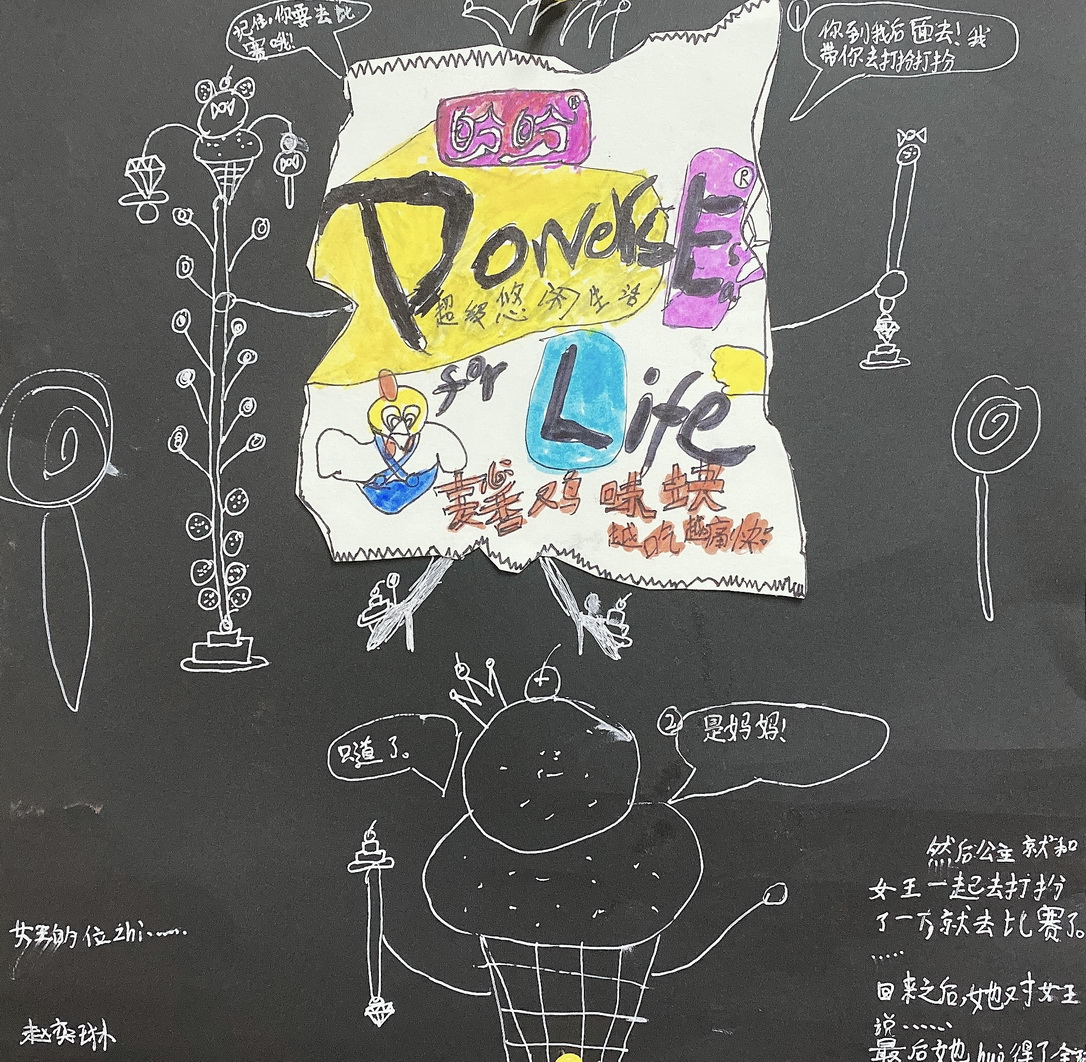 记住,你要去比
赛哦!
①
你到我后面去!我
带你去打扮打扮
哈哈®
PowersE®
超级悠闲生活
for Life
香鸡味块
越吃越痛快
只道了。
②
是妈妈!
然后公主就和
女王一起去打扮
了一下就去比赛了。
.....
回来之后,她对女王
说......
最后她hui得了全
女王的位zhi......
赵奕琳